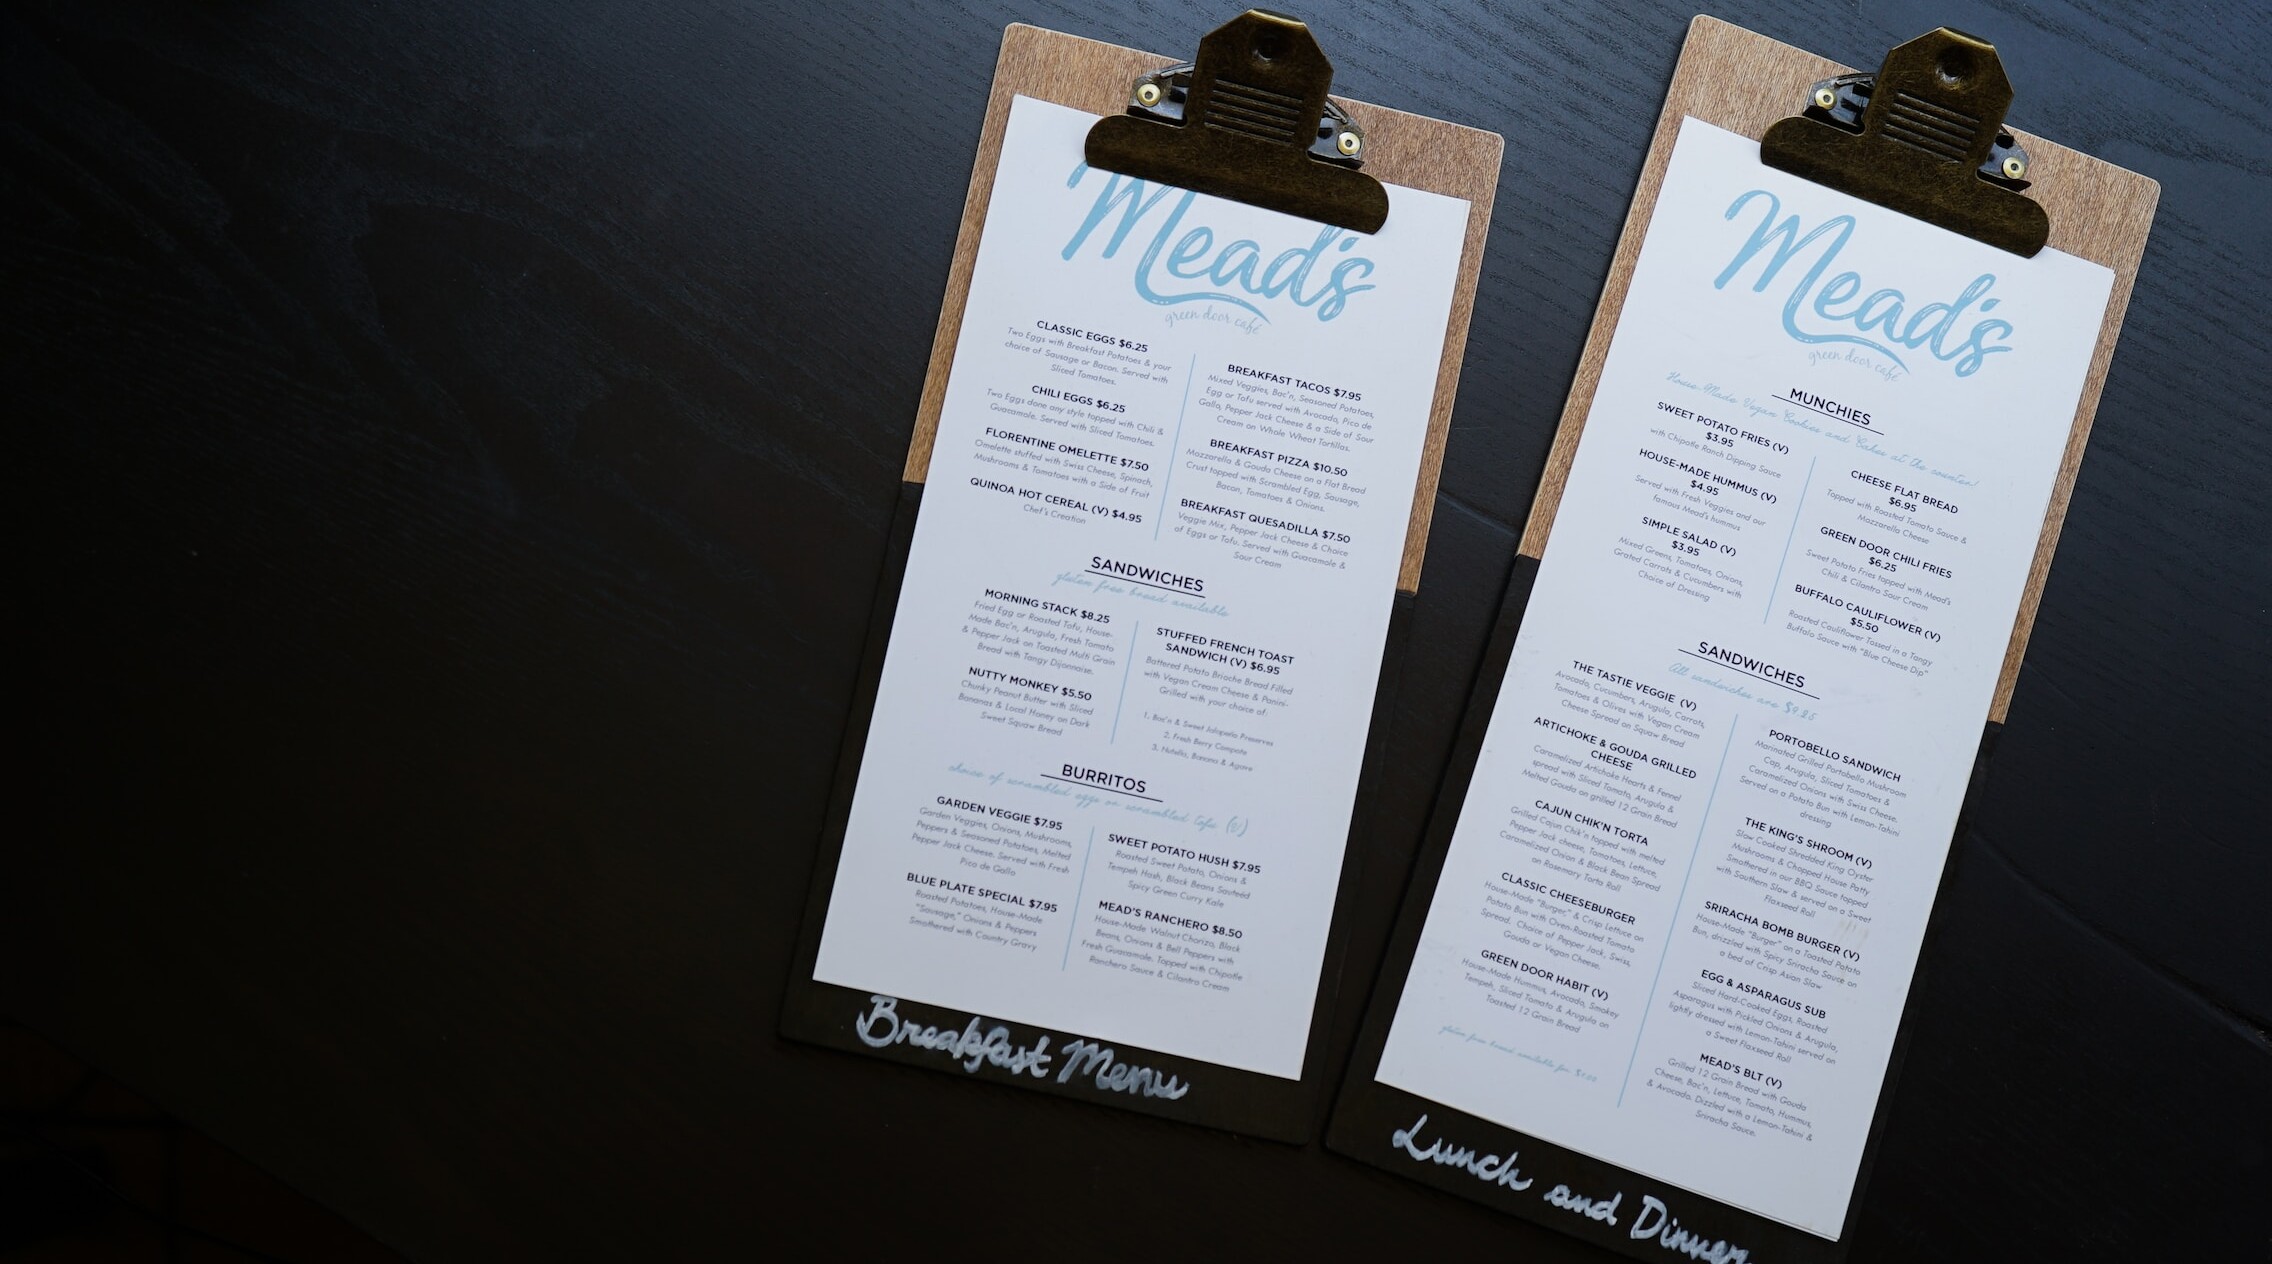 Mead's
green door café
CLASSIC EGGS $6.25
Two Eggs with Breakfast Potatoes & your
choice of Sausage or Bacon. Served with
Sliced Tomatoes.
CHILI EGGS $6.25
Two Eggs done any style topped with Chili &
Guacamole. Served with Sliced Tomatoes.
FLORENTINE OMELETTE $7.50
Omelette stuffed with Swiss Cheese, Spinach,
Mushrooms & Tomatoes with a Side of Fruit
QUINOA HOT CEREAL (V) $4.95
Chef's Creation
BREAKFAST TACOS $7.95
Mixed Veggies, Bac'n, Seasoned Potatoes,
Egg or Tofu served with Avocado, Pico de
Gallo, Pepper Jack Cheese & a Side of Sour
Cream on Whole Wheat Tortillas.
BREAKFAST PIZZA $10.50
Mozzarella & Gouda Cheese on a Flat Bread
Crust topped with Scrambled Egg, Sausage,
Bacon, Tomatoes & Onions.
BREAKFAST QUESADILLA $7.50
Veggie Mix, Pepper Jack Cheese & Choice
of Eggs or Tofu. Served with Guacamole &
Sour Cream
SANDWICHES
gluten free bread available
MORNING STACK $8.25
Fried Egg or Roasted Tofu, House-
Made Bac'n, Arugula, Fresh Tomato
& Pepper Jack on Toasted Multi Grain
Bread with Tangy Dijonnaise.
NUTTY MONKEY $5.50
Chunky Peanut Butter with Sliced
Bananas & Local Honey on Dark
Sweet Squaw Bread
STUFFED FRENCH TOAST
SANDWICH (V) $6.95
Battered Potato Brioche Bread Filled
with Vegan Cream Cheese & Panini-
Grilled with your choice of:
1. Bac'n & Sweet Jalapeño Preserves
2. Fresh Berry Compote
3. Nutella, Banana & Agave
BURRITOS
choice of scrambled eggs or scrambled tofu (V)
GARDEN VEGGIE $7.95
Garden Veggies, Onions, Mushrooms,
Peppers & Seasoned Potatoes, Melted
Pepper Jack Cheese. Served with Fresh
Pico de Gallo
BLUE PLATE SPECIAL $7.95
Roasted Potatoes, House-Made
"Sausage," Onions & Peppers
Smothered with Country Gravy
SWEET POTATO HUSH $7.95
Roasted Sweet Potato, Onions &
Tempeh Hash, Black Beans Sautéed
Spicy Green Curry Kale
MEAD'S RANCHERO $8.50
House-Made Walnut Chorizo, Black
Beans, Onions & Bell Peppers with
Fresh Guacamole. Topped with Chipotle
Ranchero Sauce & Cilantro Cream
Breakfast Menu
Mead's
green door café
MUNCHIES
House-Made Vegan Cookies and Cakes at the counter
SWEET POTATO FRIES (V)
$3.95
with Chipotle Ranch Dipping Sauce
HOUSE-MADE HUMMUS (V)
$4.95
Served with Fresh Veggies and our
famous Mead's hummus
SIMPLE SALAD (V)
$3.95
Mixed Greens, Tomatoes, Onions,
Grated Carrots & Cucumbers with
Choice of Dressing
CHEESE FLAT BREAD
$6.95
Topped with Roasted Tomato Sauce &
Mozzarella Cheese
GREEN DOOR CHILI FRIES
$6.25
Sweet Potato Fries topped with Mead's
Chili & Cilantro Sour Cream
BUFFALO CAULIFLOWER (V)
$5.50
Roasted Cauliflower Tossed in a Tangy
Buffalo Sauce with "Blue Cheese Dip"
SANDWICHES
All sandwiches are $9.25
THE TASTIE VEGGIE (V)
Avocado, Cucumbers, Arugula, Carrots,
Tomatoes & Olives with Vegan Cream
Cheese Spread on Squaw Bread
ARTICHOKE & GOUDA GRILLED
CHEESE
Caramelized Artichoke Hearts & Fennel
spread with Sliced Tomato, Arugula &
Melted Gouda on grilled 12 Grain Bread
CAJUN CHIK'N TORTA
Grilled Cajun Chik'n topped with melted
Pepper Jack cheese, Tomatoes, Lettuce,
Caramelized Onion & Black Bean Spread
on Rosemary Torta Roll
CLASSIC CHEESEBURGER
House-Made "Burger," & Crisp Lettuce on
Potato Bun with Oven-Roasted Tomato
Spread. Choice of Pepper Jack, Swiss,
Gouda or Vegan Cheese.
GREEN DOOR HABIT (V)
House-Made Hummus, Avocado, Smokey
Tempeh, Sliced Tomato & Arugula on
Toasted 12 Grain Bread
gluten free bread available for
PORTOBELLO SANDWICH
Marinated Grilled Portobello Mushroom
Cap, Arugula, Sliced Tomatoes &
Caramelized Onions with Swiss Cheese.
Served on a Potato Bun with Lemon-Tahini
dressing
THE KING'S SHROOM (V)
Slow Cooked Shredded King Oyster
Mushrooms & Chopped House Patty
Smothered in our BBQ Sauce topped
with Southern Slaw & served on a Sweet
Flaxseed Roll
SRIRACHA BOMB BURGER (V)
House-Made "Burger" on a Toasted Potato
Bun, drizzled with Spicy Sriracha Sauce on
a bed of Crisp Asian Slaw
EGG & ASPARAGUS SUB
Sliced Hard-Cooked Eggs, Roasted
Asparagus with Pickled Onions & Arugula,
lightly dressed with Lemon-Tahini served on
a Sweet Flaxseed Roll
MEAD'S BLT (V)
Grilled 12 Grain Bread with Gouda
Cheese, Bac'n, Lettuce, Tomato, Hummus,
& Avocado. Dizzled with a Lemon-Tahini &
Sriracha Sauce.
Lunch and Dinner